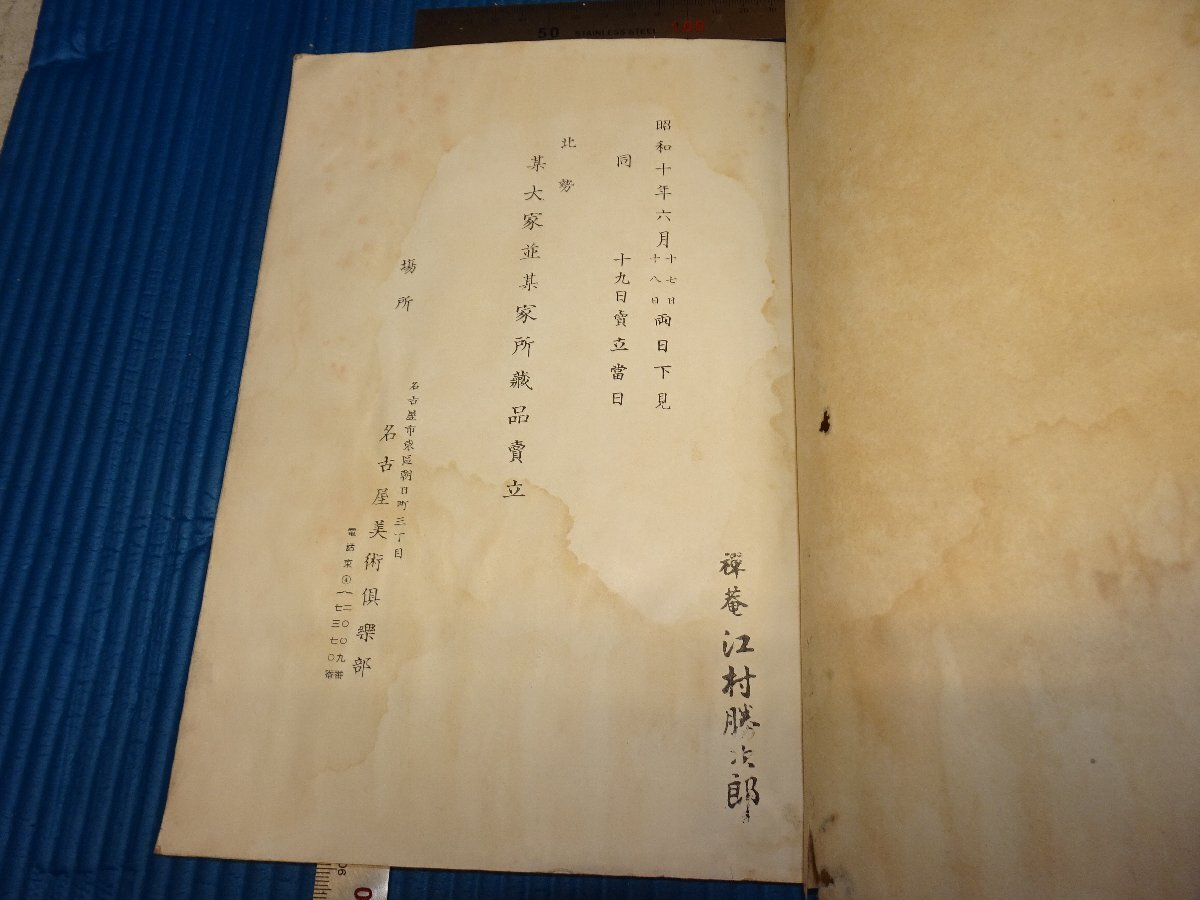 昭和十年六月十七日十八日両日下見
同 十九日賣立當日
北勢
某大家並某家所藏品賣立
場所
名古屋市東區朝日町三丁目
名古屋美術倶樂部
電話東④一二〇〇九番
一七三七〇番
禅菴 江村勝次郎
50 STAINLESS STEEL 100